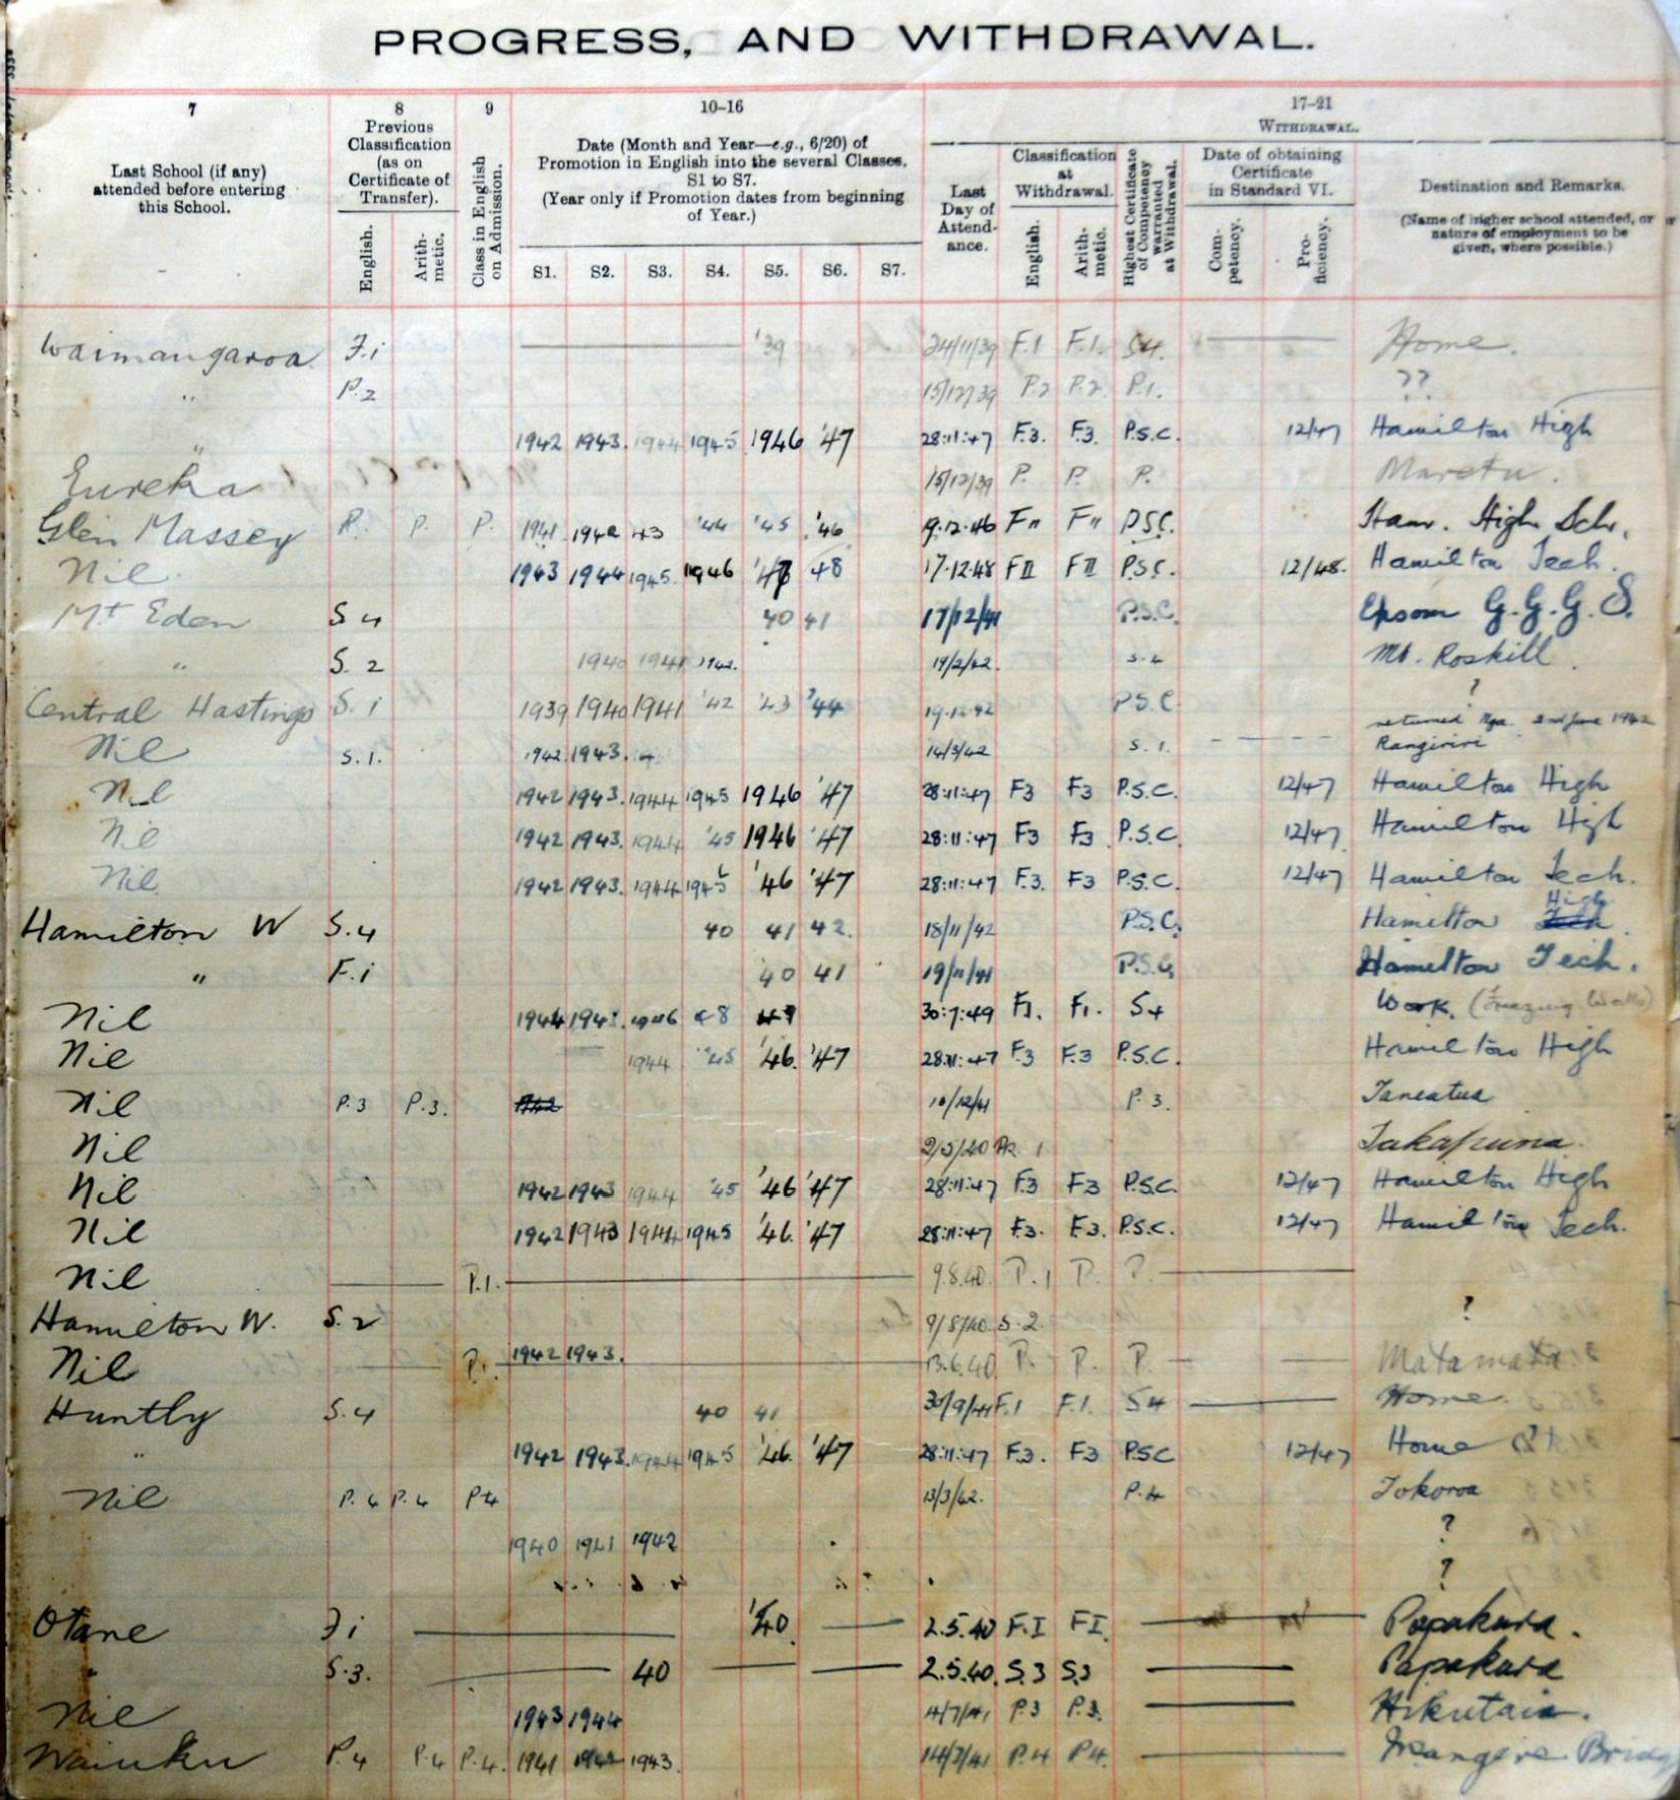 PROGRESS, AND WITHDRAWAL.
7 8 9 10–16 17–21
Last School (if any) attended before entering this School.
Previous Classification (as on Certificate of Transfer).
English. Arith-metic.
Class in English on Admission.
Date (Month and Year—e.g., 6/20) of Promotion in English into the several Classes, S1 to S7.
(Year only if Promotion dates from beginning of Year.)
S1. S2. S3. S4. S5. S6. S7.
WITHDRAWAL.
Last Day of Attend-ance.
Classification at Withdrawal.
English. Arith-metic.
Highest Certificate of Competency warranted at Withdrawal.
Date of obtaining Certificate in Standard VI.
Com-petency. Pro-ficiency.
Destination and Remarks.
(Name of higher school attended, or nature of employment to be given, where possible.)
Waimangaroa F.i '39 24/11/39 F.1 F.1. S4. Home.
" P.2 15/12/39 P.2 P.2. P.1. ??
" 1942 1943. 1944 1945 1946 '47 28:11:47 F.3. F.3. P.S.C. 12/47 Hamilton High
Eureka 15/12/39 P. P. P.
Glen Massey P. P. P. 1941 1942 43 '44 '45 '46 9.12.46 F" F" P.S.C. Ham. High Sch.
Nil 1943 1944 1945. 1946 48 17.12.48 FII FII P.S.C. 12/48. Hamilton Tech.
Mt Eden S 4 40 41 17/12/41 P.S.C. Epsom G.G.G.S.
" S. 2 1940 1941 1942. 19/2/42. Mt. Roskill.
Central Hastings S. i 1939 1940 1941 '42 '43 '44 P.S.C ?
returned Nga. 2nd June 1942
Nil S.1. 1942 1943. 14/3/42 S. 1. Rangiriri
Nil 1942 1943. 1944 1945 1946 '47 28:11:47 F3 F3 P.S.C. 12/47 Hamilton High
Nil 1942 1943. 1944 '45 1946 '47 28:11:47 F3 F3 P.S.C. 12/47 Hamilton High
Nil 1942 1943. 1944 1945 '46 '47 28:11:47 F.3. F3 P.S.C. 12/47 Hamilton Tech.
Hamilton W S.4 40 41 42. 18/11/42 P.S.C. Hamilton High
" F.i 40 41 19/11/41 P.S.C. Hamilton Tech.
Nil 1944 48 30:7:49 F1. F1. S4 Work. (Freezing Works)
Nil 1944 '45 '46. '47 28:11:47 F.3 F.3 P.S.C. Hamilton High
Nil P.3 P.3. 1942 10/12/41 P.3. Taneatua
Nil 2/5/40 Pr. 1 Takapuna.
Nil 1942 1943 1944 '45 '46 '47 28:11:47 F.3 F3 P.S.C. 12/47 Hamilton High
Nil 1942 1943 1944 1945 '46. '47 28:11:47 F.3. F.3. P.S.C. 12/47 Hamilton Tech.
Nil P.1. 9.8.40. P.1 P. P.
Hamilton W. S.2 9/8/40 S.2. ?
Nil P. 1942 1943. 13.6.40. P. P. P. Matamata
Huntly S.4 40 41 30/9/41 F.1 F.1. S4 Home.
" 1942 1943. 1944 1945 '46. '47 28:11:47 F.3. F3 P.S.C 12/47 Home
Nil P.4 P.4 P4 13/3/42. P.4 Tokoroa
1940 1941 1942 ?
?
Otane F i '40. 2.5.40 F.I FI. Papakura.
S.3. 40 2.5.40. S.3 S.3 Papakura
Nil 1943 1944 4/7/41 P.3 P.3. Hikutaia.
Waiuku P.4 P.4 P.4. 1941 1942 1943. P.4 P4. Mangere Bridg